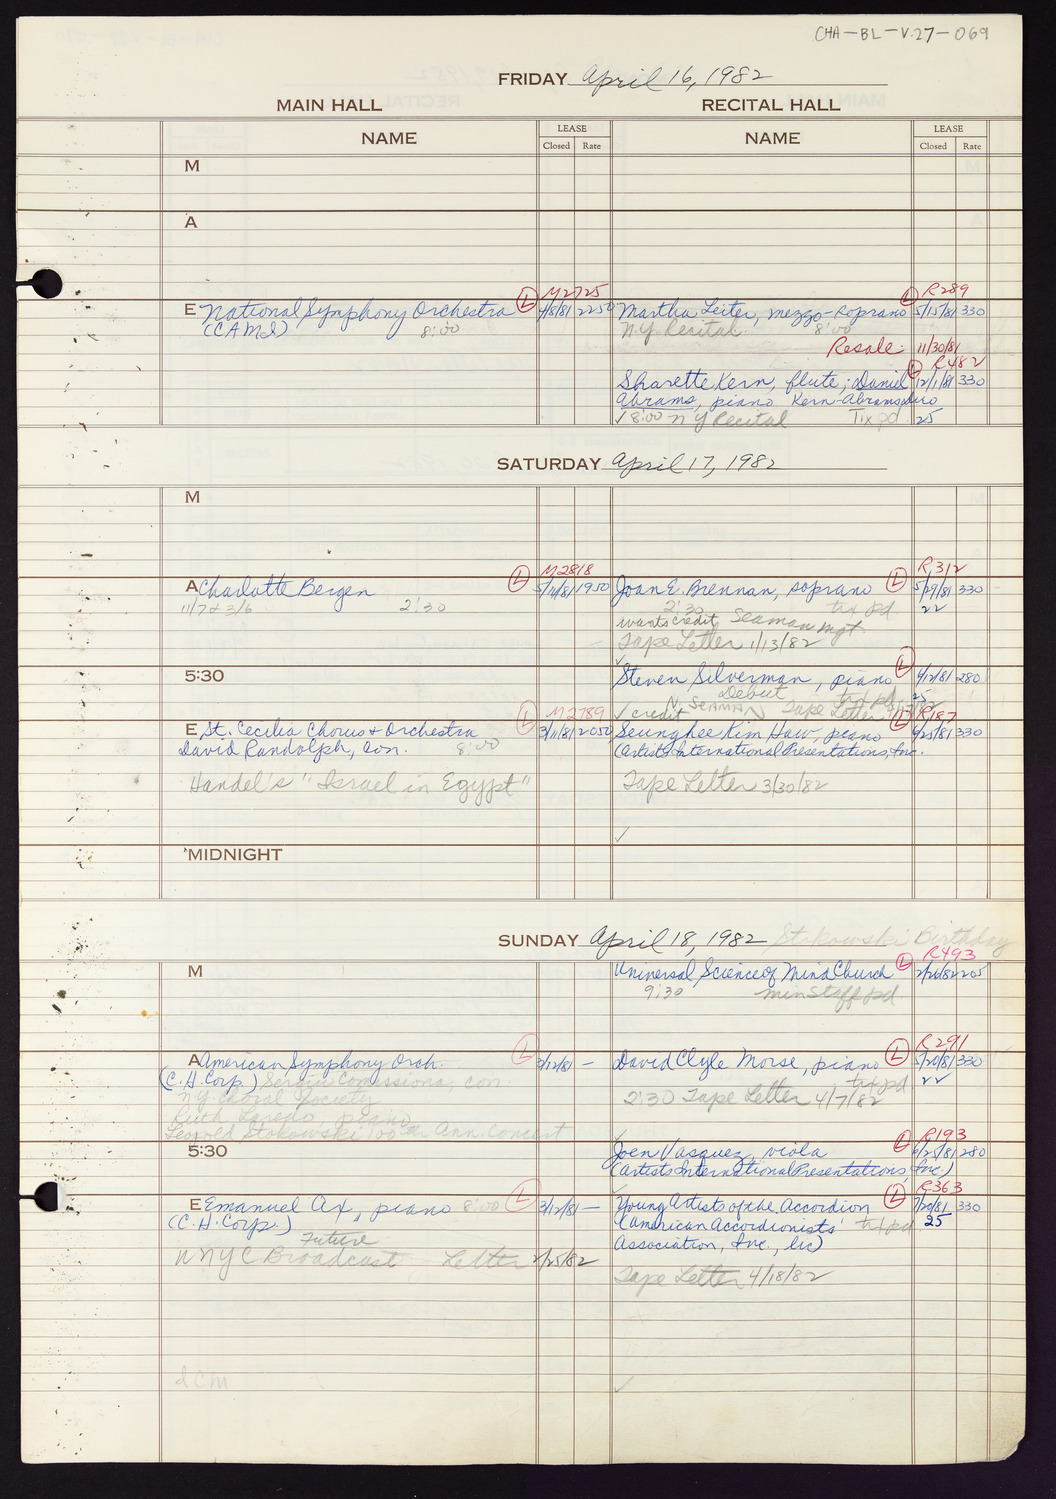 CHA-BL-V.27-069
FRIDAY April 16, 1982
MAIN HALL RECITAL HALL
NAME LEASE Closed Rate NAME LEASE Closed Rate
M
A
M2725 R289
E National Symphony Orchestra L 4/8/81 2250 Martha Leiter, mezzo-soprano L 5/15/81 330
(CAMI) 8:00 N.Y. Recital 8:00
Resale: 11/30/81
L R482
Sharette Kern, flute; Daniel 12/1/81 330
Abrams, piano Kern-Abrams duo
✓ 8:00 NY Recital Tix pd. 25
SATURDAY April 17, 1982
M
M2818 R312
A Charlotte Bergen L 5/11/81 1950 Joan E. Brennan, soprano L 5/29/81 330
11/7 & 3/6 2:30 2:30 tix pd 22
wants credit Seaman Mgt
Tape Letter 1/13/82
✓
5:30 Steven Silverman, piano L 4/12/81 280
Debut tix pd. 25
✓ credit N. SEAMAN Tape Letter
M2789 R187
E St. Cecilia Chorus & Orchestra L 3/11/81 2050 Seunghee Kim Haw, piano L 4/25/81 330
David Randolph, con. 8:00 (Artists International Presentations, Inc.
Handel's "Israel in Egypt" Tape Letter 3/30/82
✓
MIDNIGHT
SUNDAY April 18, 1982 Stokowski Birthday
R493
M Universal Science of Mind Church L 2/26/82 205
9:30 min staff pd.
R291
A American Symphony Orch. L 3/12/81 — David Clyle Morse, piano L 5/20/81 330
(C.H. Corp.) Sergiu Comissiona, con. tix pd 22
NY Choral Society 2:30 Tape Letter 4/7/82
Ruth Laredo, piano
Leopold Stokowski 100th Ann. Concert ✓
R193
5:30 Joen Vasquez, viola L 4/25/81 280
(Artists International Presentations, Inc.)
✓ R363
E Emanuel Ax, piano 8:00 L 3/12/81 — Young Artists of the Accordion L 7/20/81 330
(C.H. Corp.) (American Accordionists' tix pd. 25
Future Association, Inc., lic)
WNYC Broadcast Letter 2/25/82
Tape Letter 4/18/82
ICM
✓